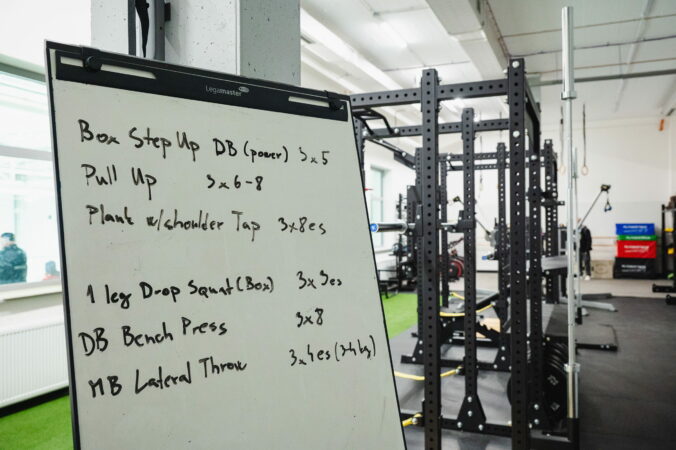 Legamaster
Box Step Up DB (power) 3x5
Pull Up 3x6-8
Plank w/shoulder Tap 3x8es
1 leg Drop Squat (Box) 3x3es
DB Bench Press 3x8
MB Lateral Throw 3x4es (3-4kg)